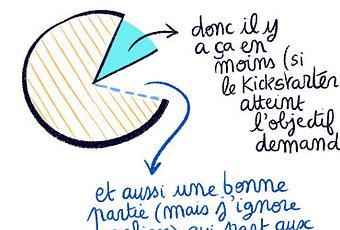 donc il y
a ça en
moins (si
le Kickstarter
atteint
l'objectif
demand
et aussi une bonne
partie (mais j'ignore
qui part aux